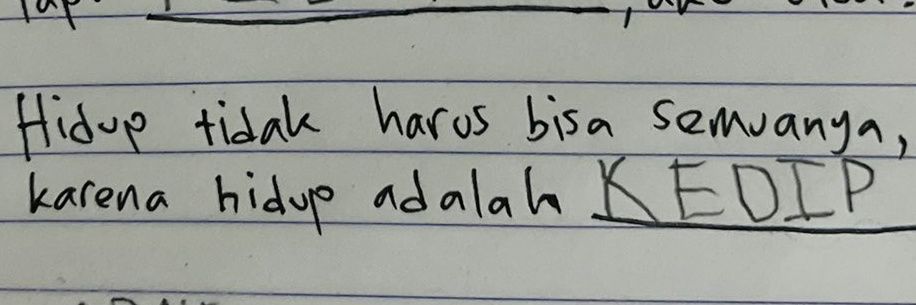 Hidup tidak harus bisa semuanya,
karena hidup adalah KEDIP